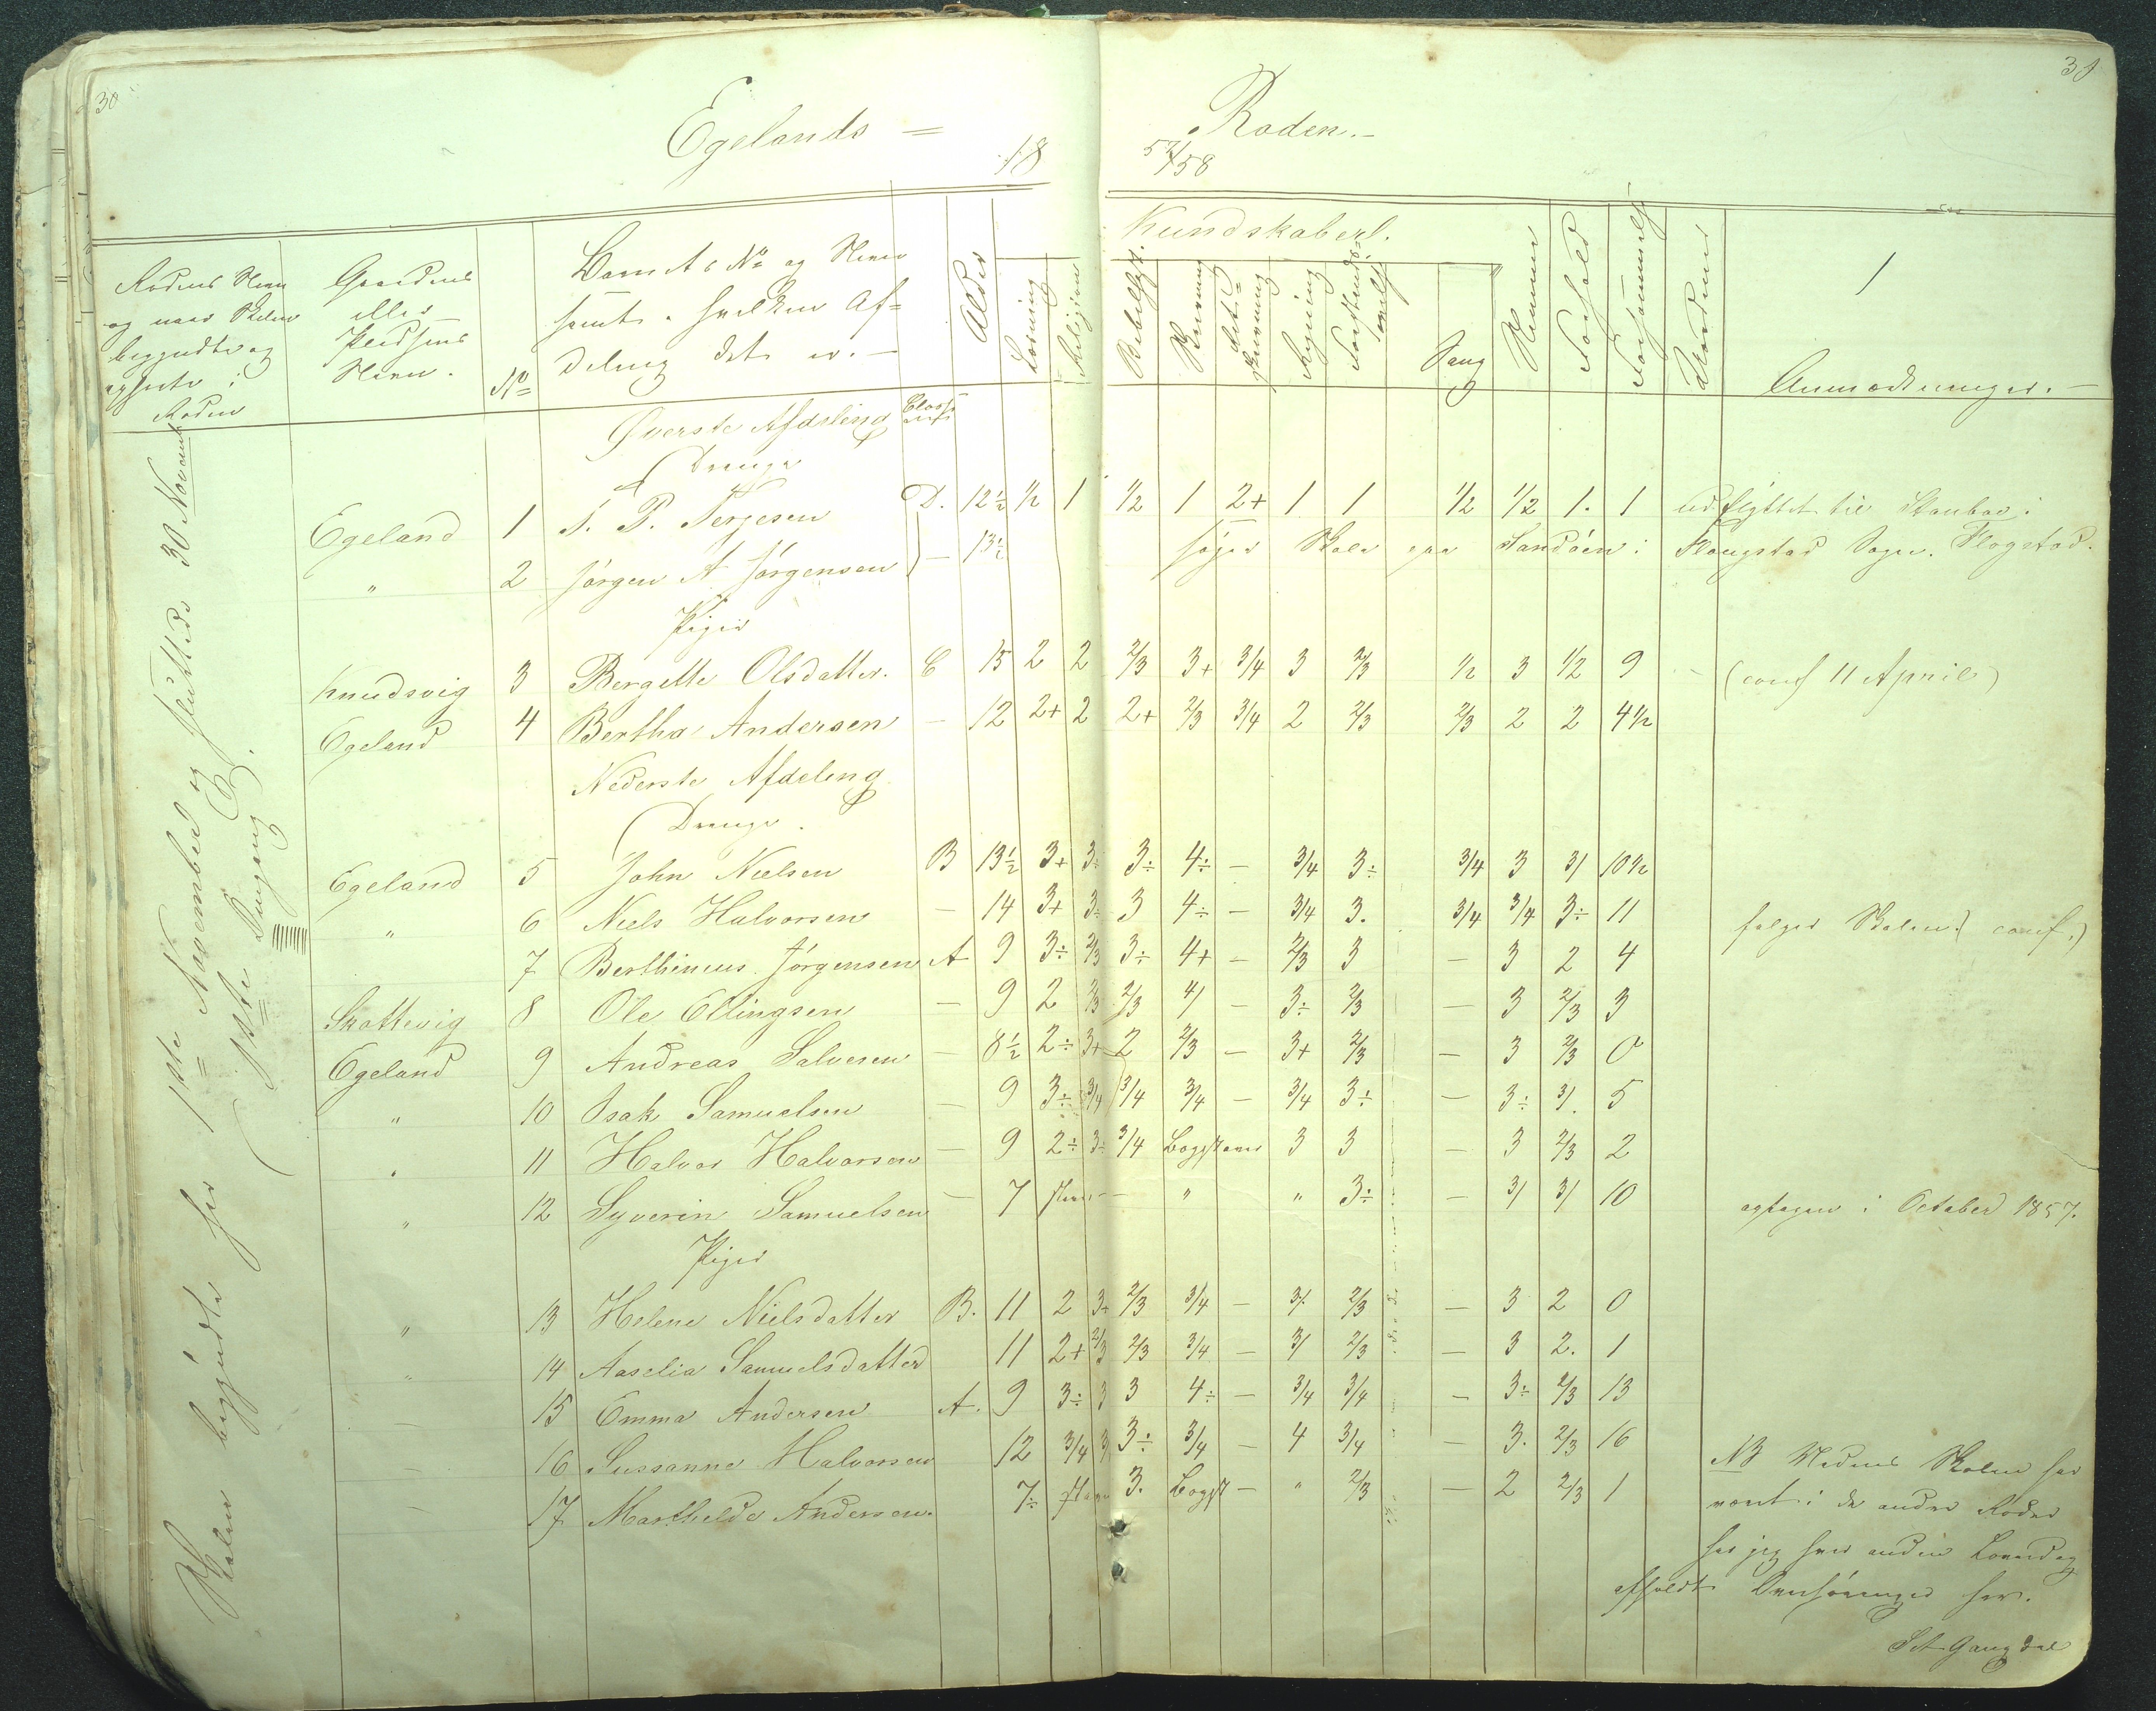 30
31
Egelands = Roden.-
18 57/58
Rodens Navn
og naar Skolen
begyndte og
sluttede i
Roden
Gaardens
eller
Pladsens
Navn.
No
Barnets No og Navn
samt i hvilken Af=
deling det er.-
Alder
Kundskaber.
Læsning
Religion
Bibelhist.
Skrivning
Ret=
skrivning
Regning
Forstands
øvelse
Sang
Nemme
Forhold
Forsømmelse
1
Anmærkninger.-
Øverste Afdeling Classe
Drenge
Egeland 1 T. P. Terjesen D. 12½ ½ 1 ½ 1 2+ 1 1 ½ ½ 1. 1 udflyttet til
" 2 Jørgen A Jørgensen - 13½ søger Skole paa Sandøen i Flougstad Sogn. Flogstad.
Piger
Knudsvig 3 Bergette Olsdatter. C 15 2 2 2/3 3+ 3/4 3 2/3 1/2 3 1/2 9 - (conf 11 April)
Egeland 4 Bertha Andersen - 12 2+ 2 2+ 2/3 3/4 2 2/3 2/3 2 2 4½
Nederste Afdeling
Drenge.
Egeland 5 John Nielsen B 13½ 3+ 3÷ 3÷ 4÷ - 3/4 3÷ 3/4 3 3/ 10½
" 6 Niels Halvorsen - 14 3+ 3÷ 3 4÷ - 3/4 3. 3/4 3/4 3÷ 11 følger Skolen (conf.)
7 Berthineus Jørgensen A 9 3÷ 2/3 3÷ 4+ - 2/3 3 - 3 2 4
Skottevig 8 Ole Ellingsen - 9 2 2/3 2/3 4/ - 3÷ 2/3 - 3 2/3 3
Egeland 9 Andreas Salvesen - 8½ 2÷ 3+ 2 2/3 - 3+ 2/3 - 3 2/3 0
" 10 Isak Samuelsen - 9 3÷ 3/4 3/4 3/4 - 3/4 3÷ - 3÷ 3/. 5
" 11 Halvor Halvorsen - 9 2÷ 3÷ 3/4 Bogstaver 3 3 - 3 2/3 2
" 12 Syverin Samuelsen - 7 " " 3÷ - 3/ 3/ 10 optagen i October 1857.
Piger
" 13 Helene Nielsdatter B. 11 2 3+ 2/3 3/4 - 3/. 2/3 - 3 2 0
" 14 Aaselia Samuelsdatter 11 2+ 2/3 2/3 3/4 - 3/ 2/3 - 3 2. 1
- 15 Emma Andersen A. 9 3÷ 3 3 4÷ - 3/4 3/4 - 3÷ 2/3 13
- 16 Sussanne Halvorsen 12 3/4 3/ 3÷ 3/4 - 4 3/4 - 3. 2/3 16
- 17 Marthilde Andersen. 7÷ 3. Bogst - " 2/3 - 2 2/3 1
NB Medens Skolen har
været i de andre Roder
har jeg hver anden Løverdag
afholdt Overhøringer her.
Skolen begyndte her 1ste November og sluttede 30 Novemb
(1ste Omgang).